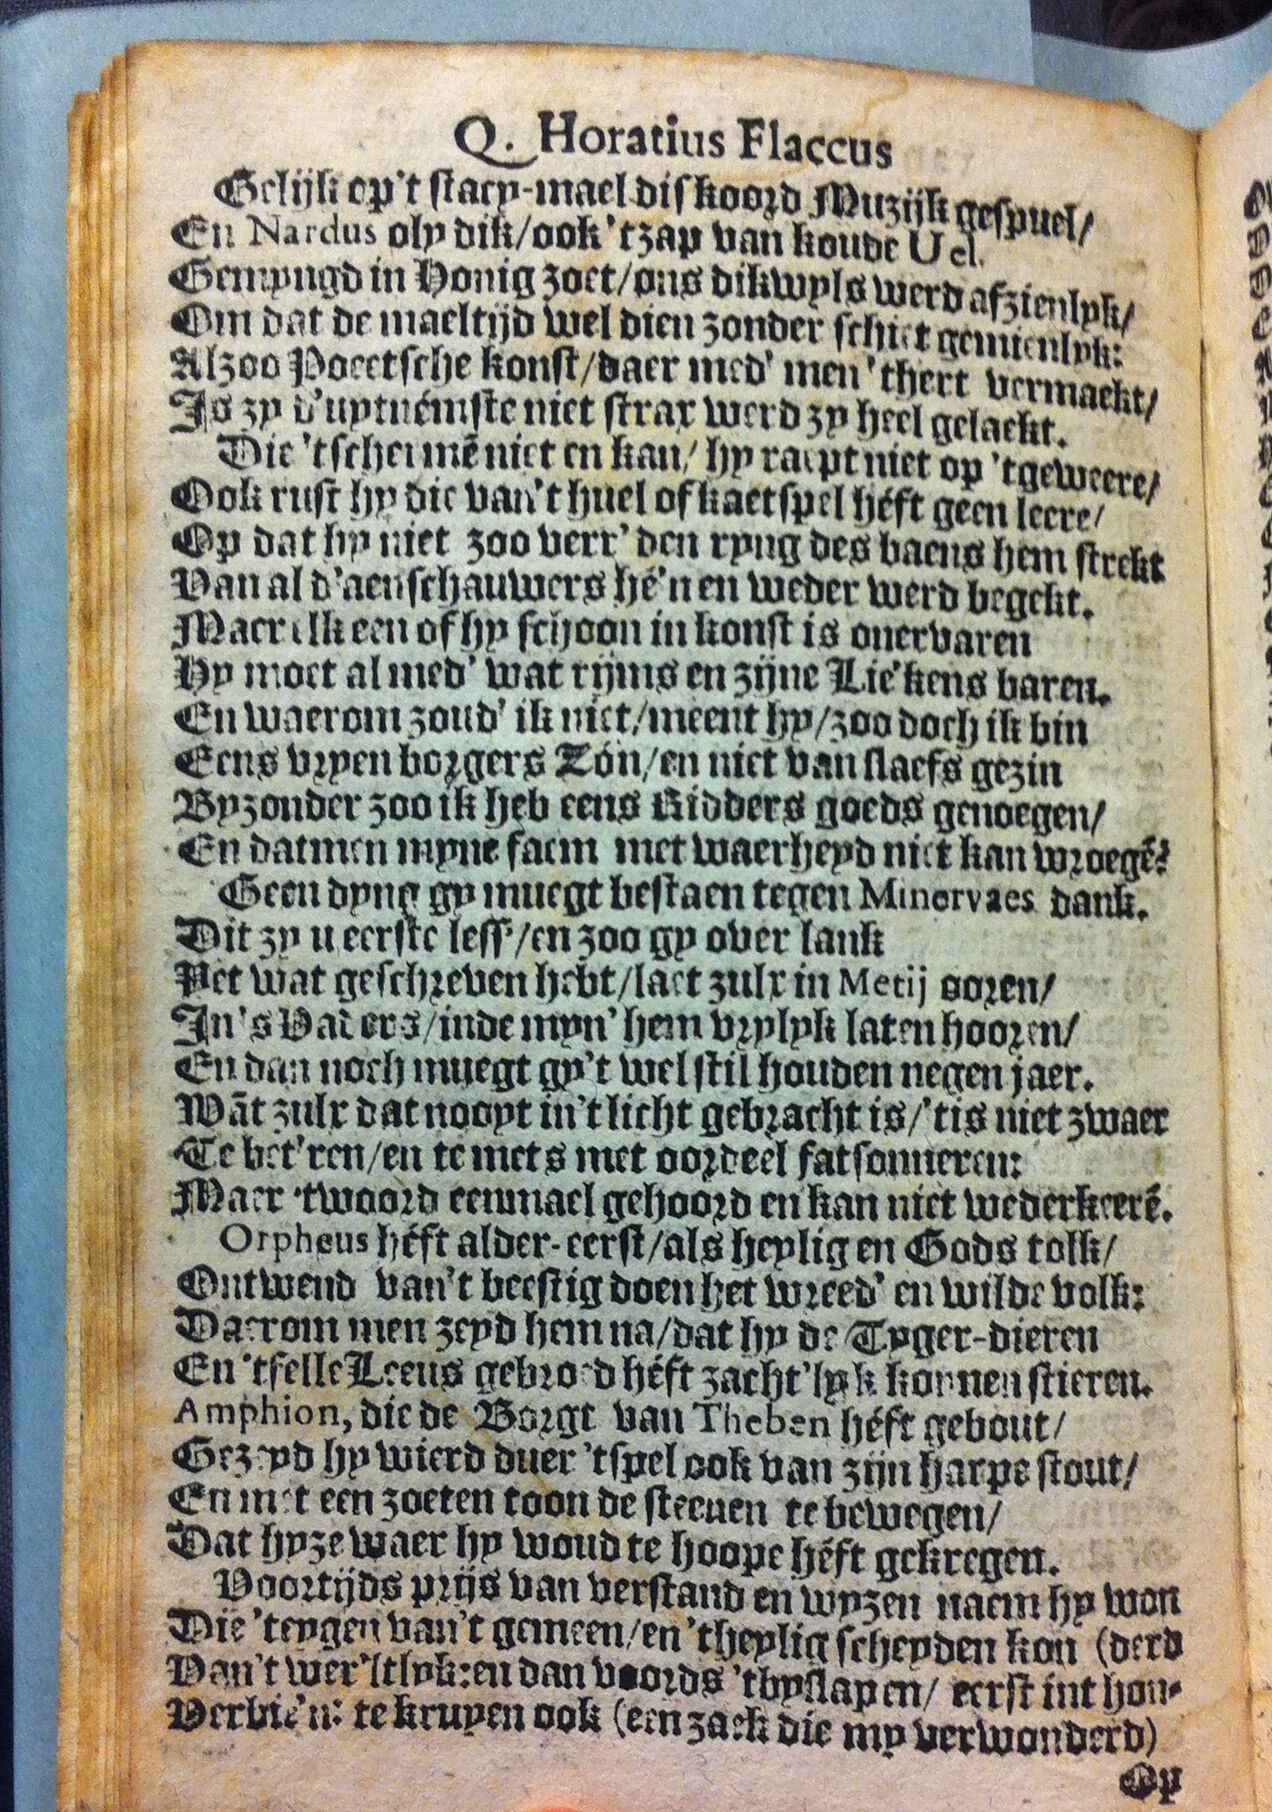 Q. Horatius Flaccus
Gelijk op't stacy-mael diskoord Muzijk gespuel/
En Nardus oly dik/ook 'tzap van koude Uel.
Gemyngd in Honig zoet/ons dikwyls werd afzienlyk/
Om dat de maeltijd wel dien zonder schiet gemienlyk:
Alzoo Poeetsche konst/daer med' men 'thert vermaekt/
Is zy d'uytnémste niet strax werd zy heel gelaekt.
Die 'tschermē niet en kan/ hy raept niet op 'tgeweere/
Ook rust hy die van't huel of kaetspel héft geen leere/
Op dat hy niet zoo verr' den ryng des baens hem strekt
Van al d'aenschauwers hé'n en weder werd begekt.
Maer elk een of hy schoon in konst is onervaren
Hy moet al med' wat rijms en zijne Lié'kens baren.
En waerom zoud' ik niet/meent hy/zoo doch ik bin
Eens vryen borgers Zón/en niet van slaefs gezin
Byzonder zoo ik heb eens Ridders goeds genoegen/
En datmen myne faem met waerheyd niet kan wroegē?
Geen dyng gy muegt bestaen tegen Minervaes dank.
Dit zy u eerste less'/en zoo gy over lank
Yet wat geschreven hebt/laet zulx in Metij ooren/
In 's Vaders/inde myn' hem vrylyk laten hooren/
En dan noch muegt gy't wel stil houden negen jaer.
Wāt zulx dat nooyt in't licht gebracht is/'tis niet zwaer
Te bet'ren/en te mets met oordeel fatsonneren:
Maer 'twoord eenmael gehoord en kan niet wederkeerē.
Orpheus héft alder-eerst/als heylig en Gods tolk/
Ontwend van't beestig doen het wreed' en wilde volk:
Daerom men zeyd hem na/dat hy de Tyger-dieren
En 'tfelle Leeus gebroed héft zacht'lyk konnen stieren.
Amphion, die de Borgt van Theben héft gebout/
Gezeyd hy wierd duer 'tspel ook van zijn harpe stout/
En met een zoeten toon de steenen te bewegen/
Dat hyze waer hy woud te hoope héft gekregen.
Voortijds prijs van verstand en wyzen naem hy won
Die 'teygen van't gemeen/en 'theylig scheyden kon (derd
Van't wer'ltlyk: en dan voords 'tbyslapen/ eerst int hon-
Verbié'n: te kruyen ook (een zaek die my verwonderd)
Op